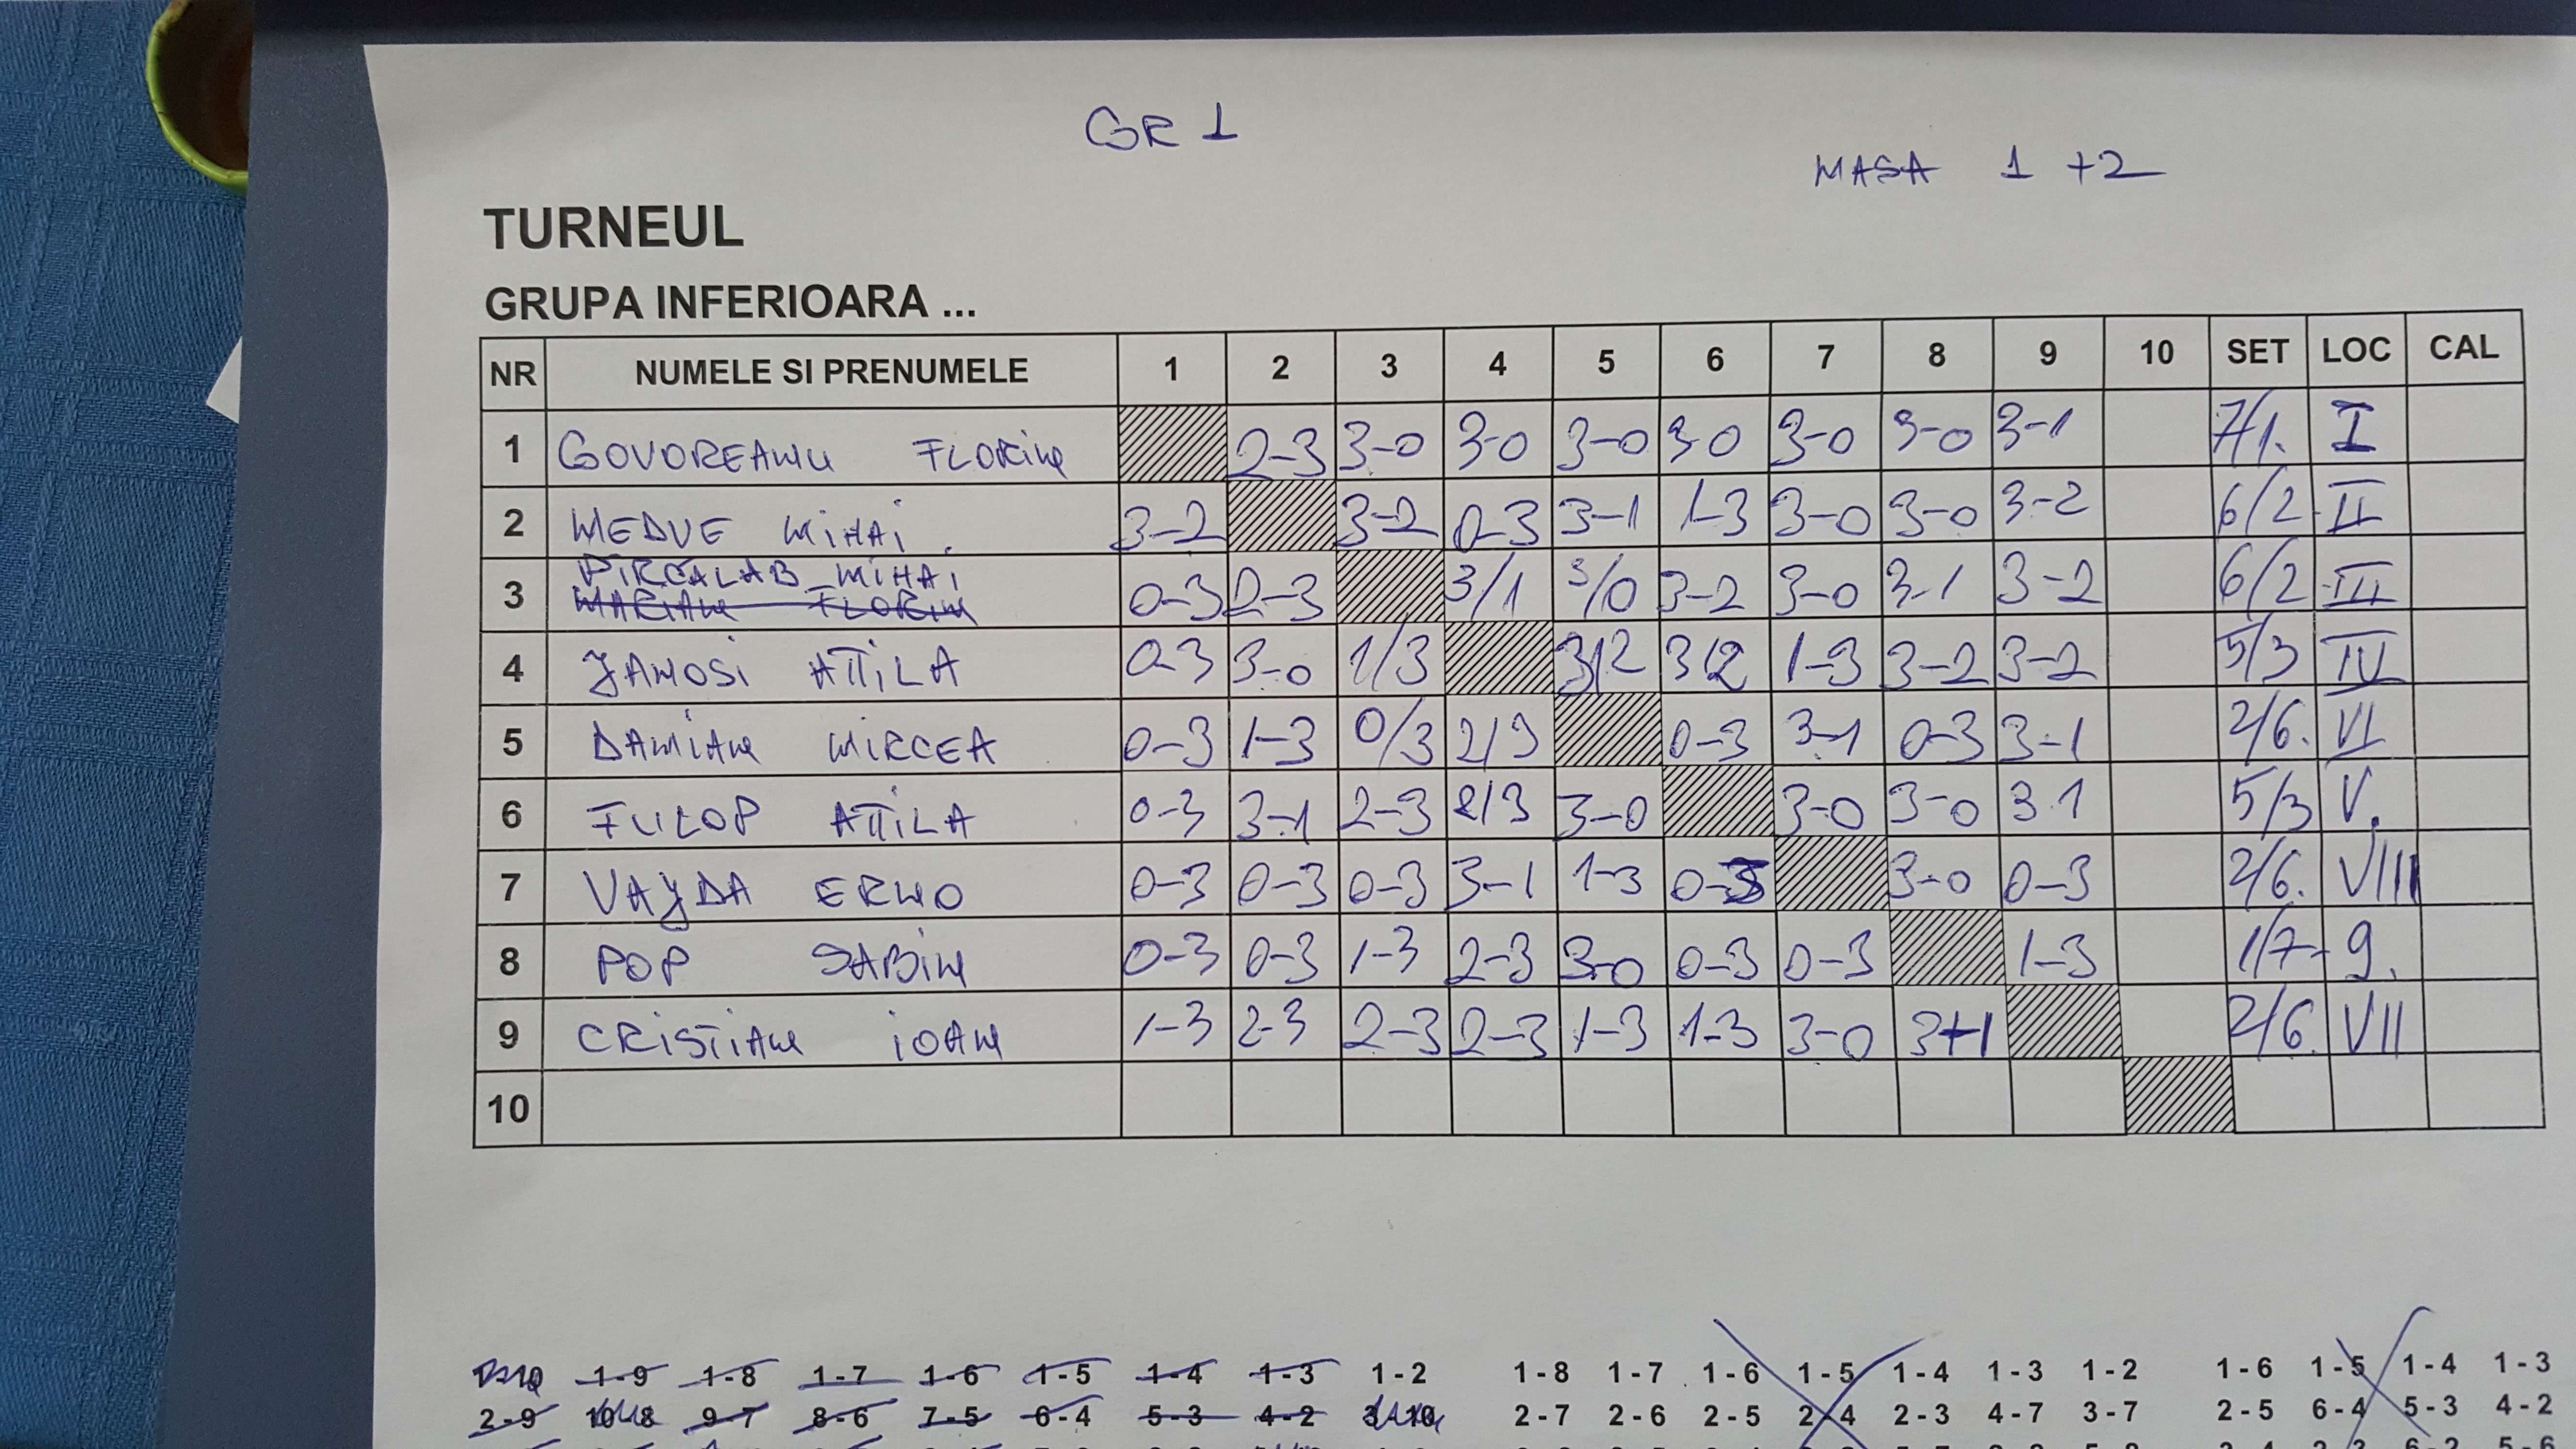 GR 1
MASA 1 +2
TURNEUL
GRUPA INFERIOARA ...
NR NUMELE SI PRENUMELE 1 2 3 4 5 6 7 8 9 10 SET LOC CAL
1 GOVOREANU FLORIN 2-3 3-0 3-0 3-0 3-0 3-0 3-0 3-1 7/1. I
2 MEDVE MIHAI. 3-2 3-2 0-3 3-1 1-3 3-0 3-0 3-2 6/2 II
PIRCALAB MIHAI
3 MARIAN FLORIN 0-3 2-3 3/1 3/0 3-2 3-0 3-1 3-2 6/2 III
4 JANOSI ATTILA 0-3 3-0 1/3 3/2 3/2 1-3 3-2 3-2 5/3 IV
5 DAMIAN MIRCEA 0-3 1-3 0/3 2/3 0-3 3-1 0-3 3-1 2/6. VI
6 FULOP ATTILA 0-3 3-1 2-3 2/3 3-0 3-0 3-0 3 1 5/3 V.
7 VAJDA ERNO 0-3 0-3 0-3 3-1 1-3 0-3 3-0 0-3 2/6. VIII
8 POP SABIN 0-3 0-3 1-3 2-3 3-0 0-3 0-3 1-3 1/7- 9.
9 CRISTIAN IOAN 1-3 2-3 2-3 2-3 1-3 1-3 3-0 3-1 2/6. VII
10
1-9 1-8 1-7 1-6 1-5 1-4 1-3 1-2 1-8 1-7 1-6 1-5 1-4 1-3 1-2 1-6 1-5 1-4 1-3
2-9 10-8 9-7 8-6 7-5 6-4 5-3 4-2 3-10 2-7 2-6 2-5 2-4 2-3 4-7 3-7 2-5 6-4 5-3 4-2